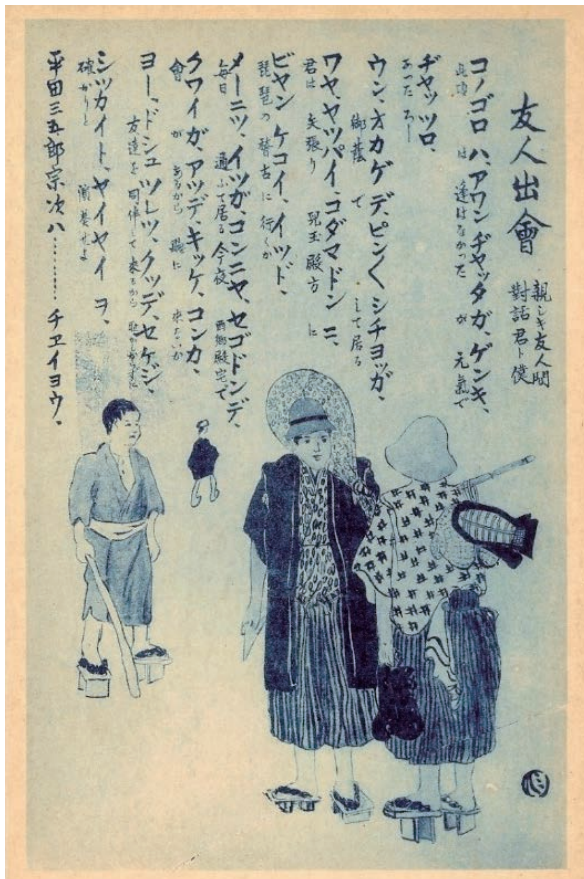 友人出會
親シキ友人間
對話君ト僕
コノゴロハ、アワンヂャッタガ、ゲンキ、
此頃は逢はなかったが元氣で
ヂャッツロ、
あったろー
ウン、オカゲデ、ピン〱シチョッガ、
御蔭でして居る
ワヤ、ヤッパイ、コダマドンニ、
君は矢張り児玉殿方に
ビヤンケコイ、イッド、
琵琶の稽古に行くか
メーニッ、イッガ、コンニャ、セゴドンデ、
毎日通ふて居る今夜西郷殿宅で
クワイガ、アッデ、キッケ、コンカ、
會があるから聴に来ないか
ヨー、ドシュツレッ、クッデ、セケジ、
友達を同伴して来るから
シッカイト、ヤイヤイヲ、
確かりと
平田三五郎宗次ハ………チェイヨウ、